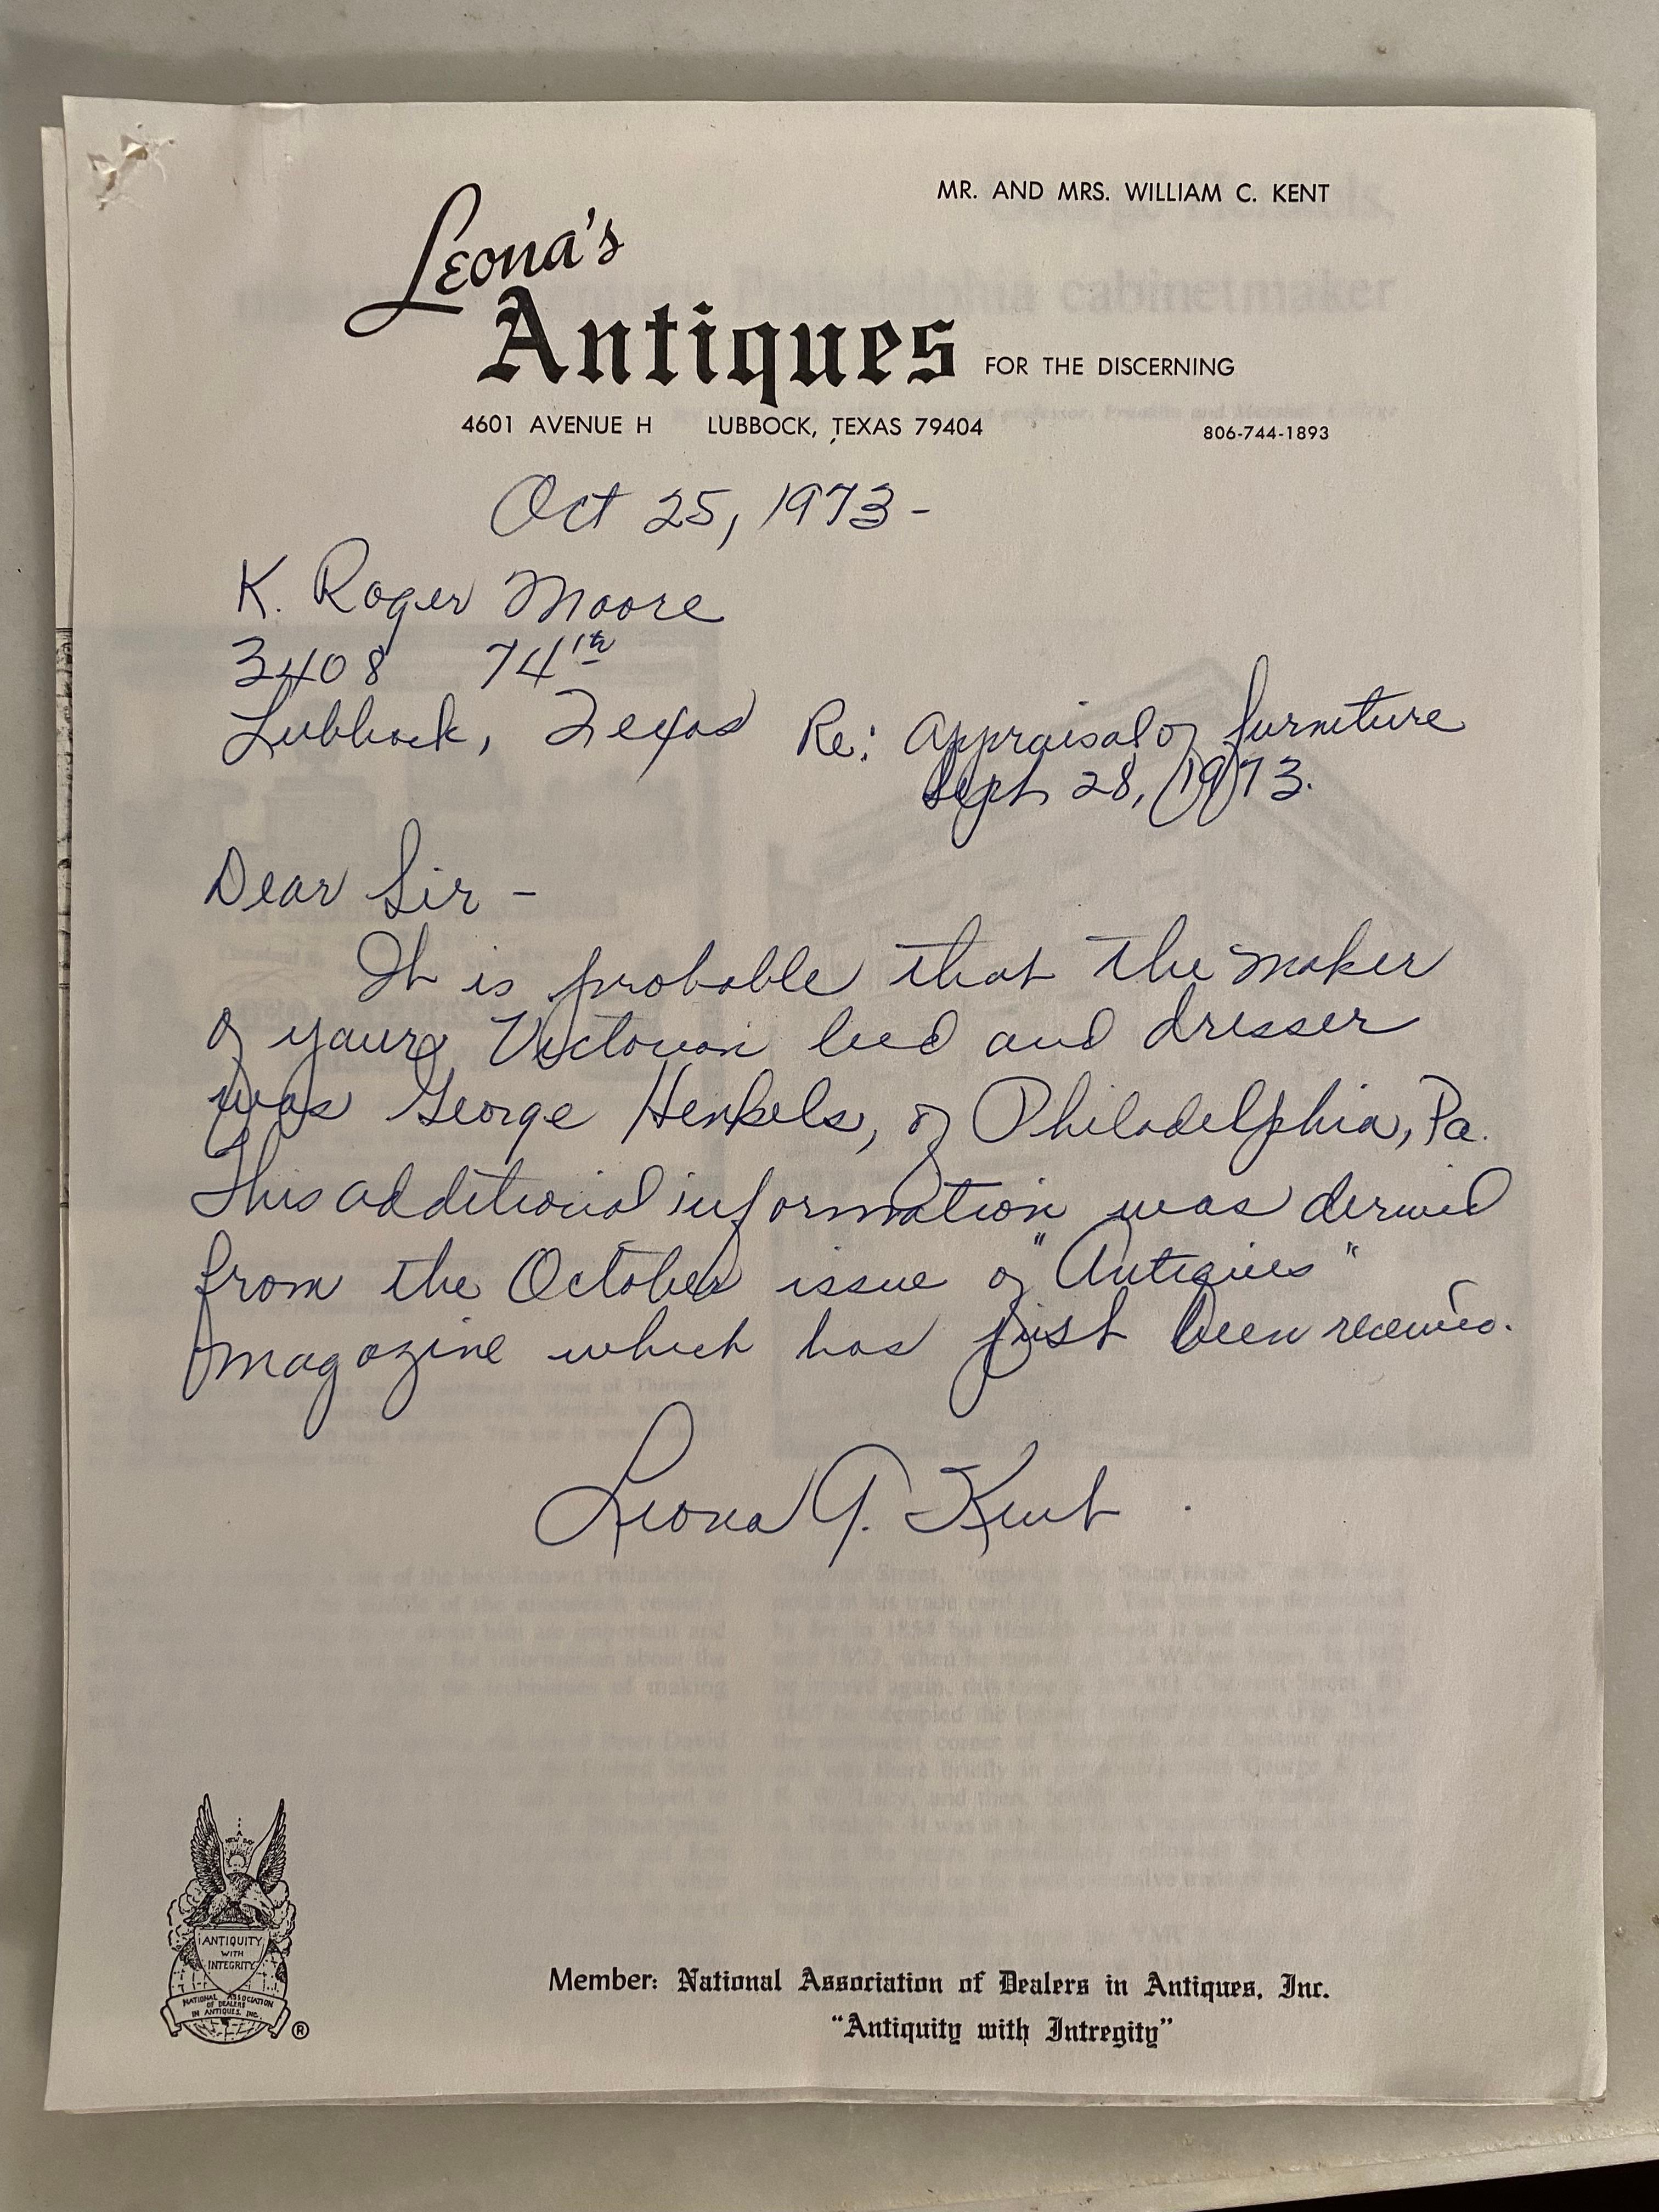 MR. AND MRS. WILLIAM C. KENT
Leona's
Antiques FOR THE DISCERNING
4601 AVENUE H LUBBOCK, TEXAS 79404 806-744-1893
Oct 25, 1973-
K. Roger Moore
3408 74th
Lubbock, Texas Re: Appraisal of furniture
Sept 28, 1973.
Dear Sir -
It is probable that the maker
of your Victorian bed and dresser
was George Henkels, of Philadelphia, Pa.
This additional information was derived
from the October issue of "Antiques"
magazine which has just been received.
Leona G. Kent
NEW DAY
ANTIQUITY
WITH
INTEGRITY
NATIONAL ASSOCIATION
OF DEALERS
IN ANTIQUES, INC.
®
Member: National Association of Dealers in Antiques, Inc.
"Antiquity with Intregity"
cabinetmaker
professor, Franklin and Marshall College